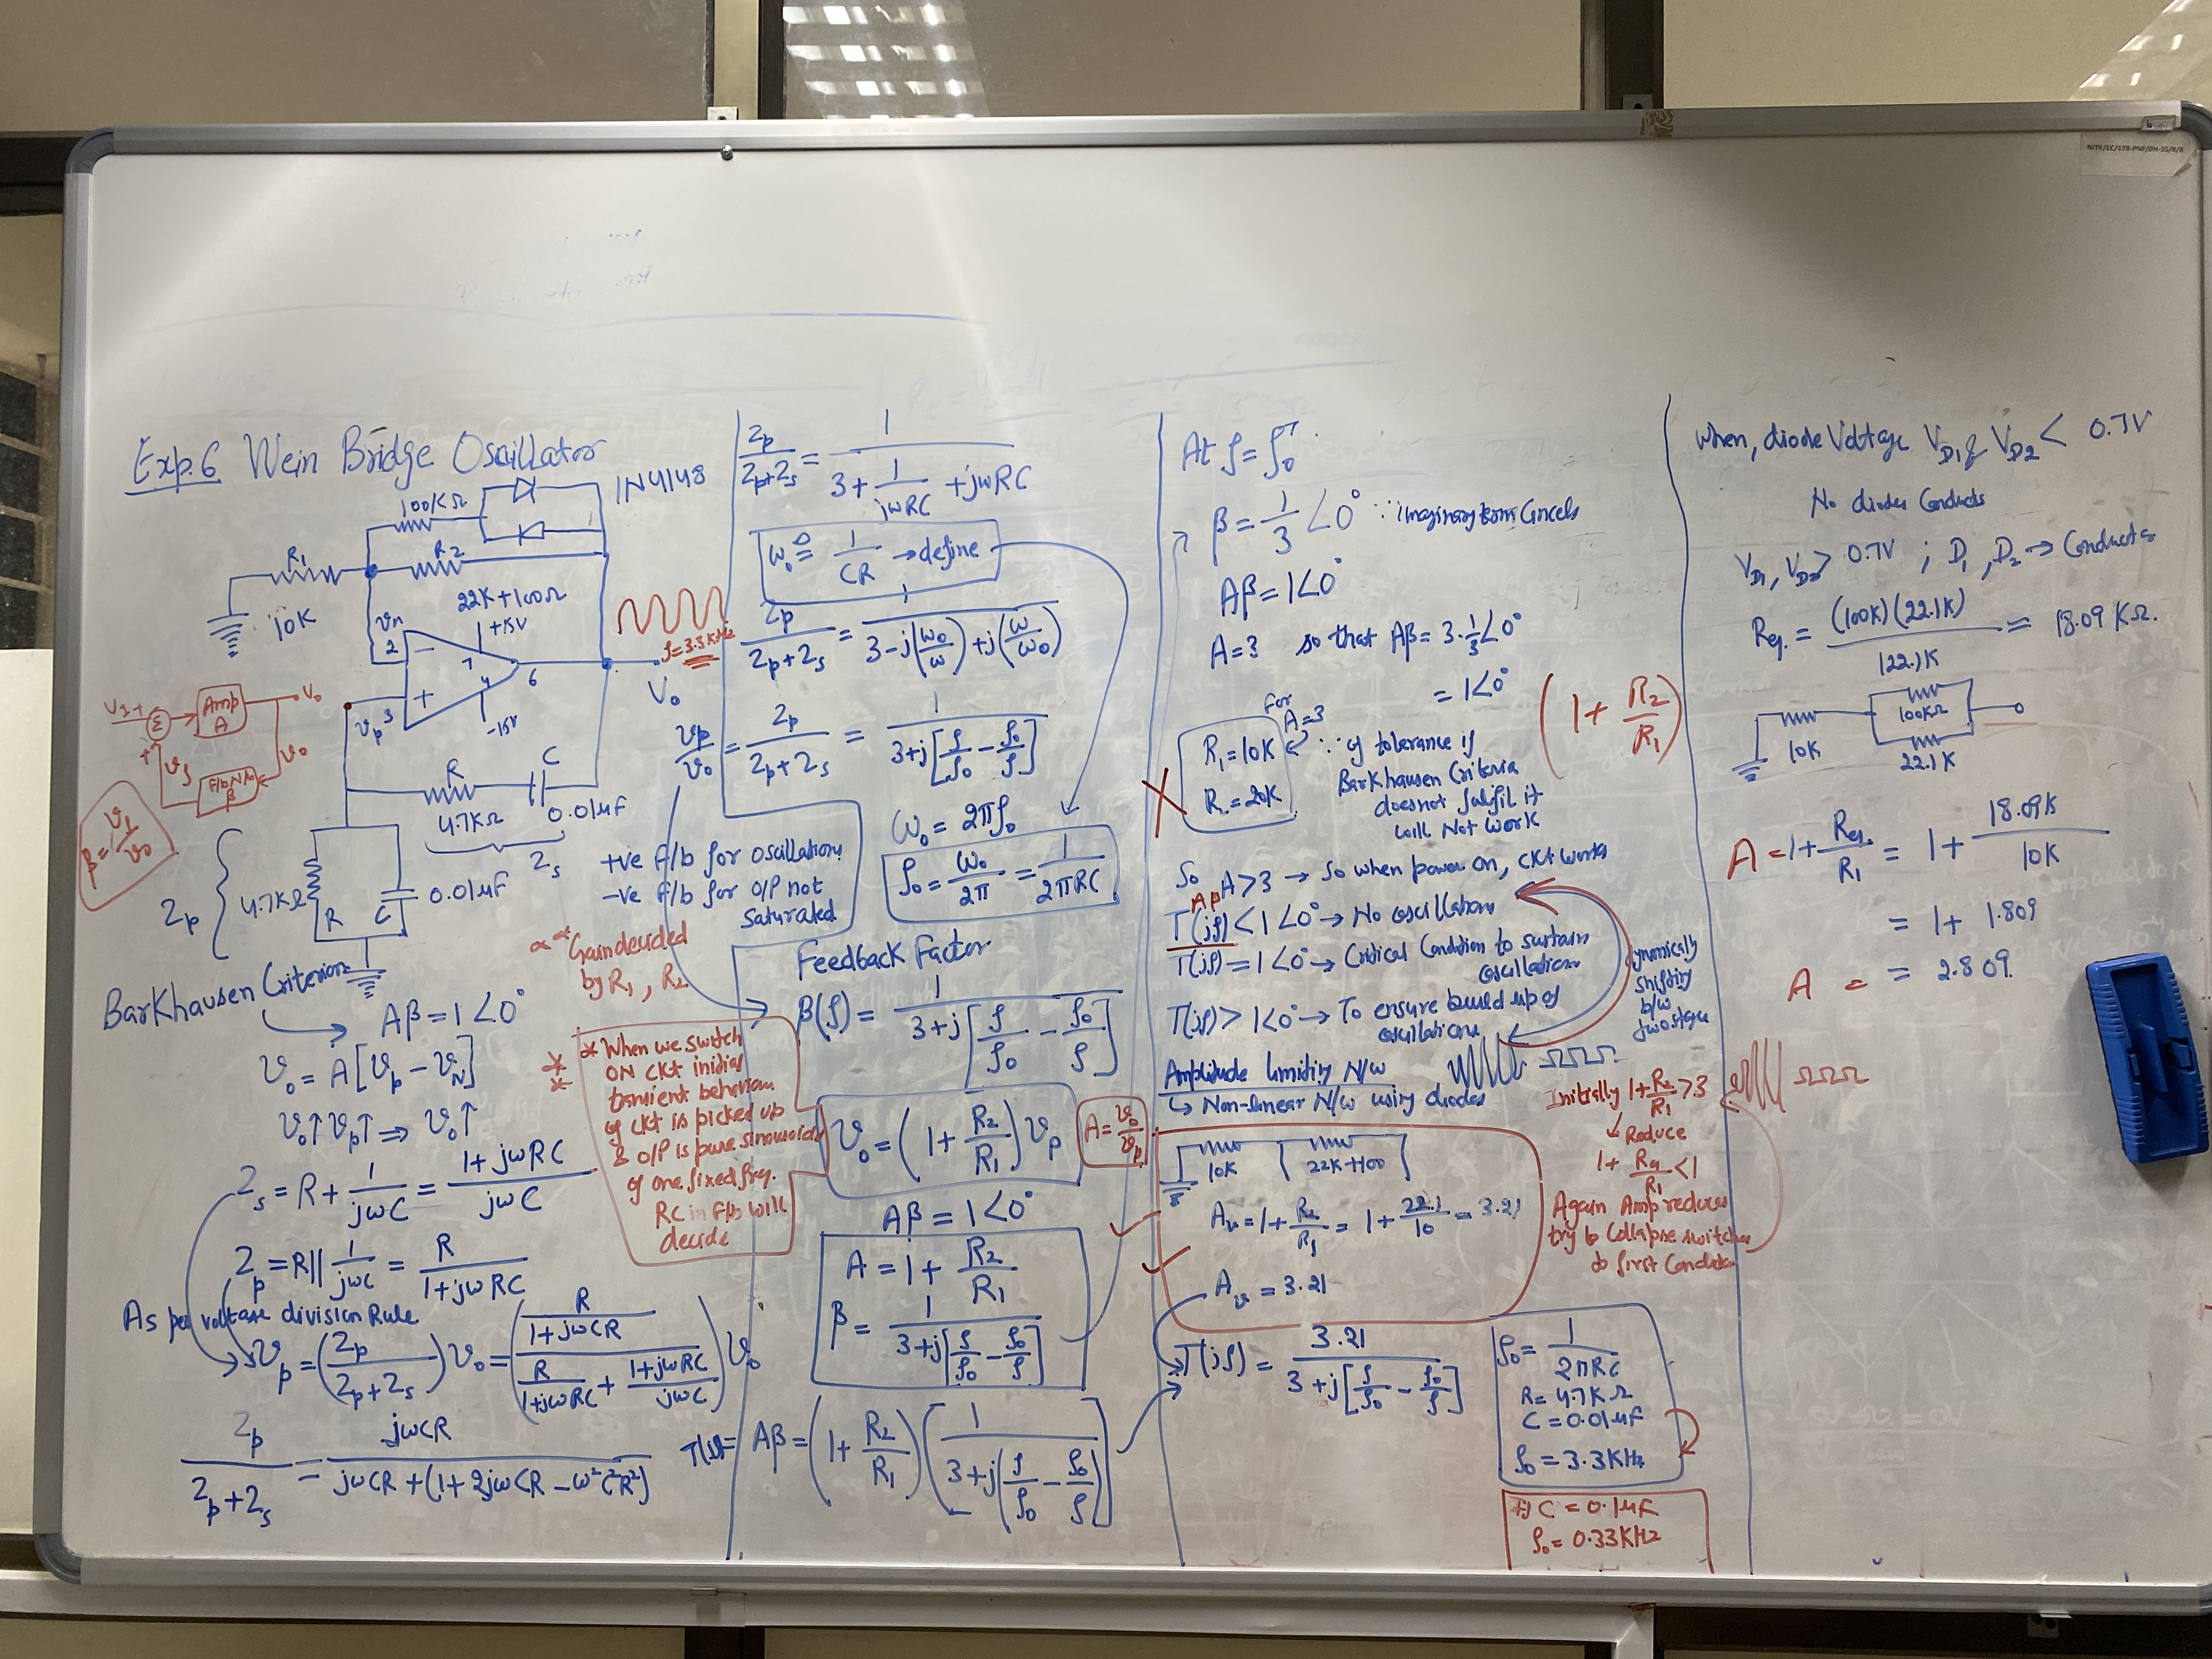 NITK/EC/178-PNF/DH-35/8/6
Exp.6 Wein Bridge Oscillator
1N4148
100KΩ
R1
R2
10K
22K+100Ω
vn
+15V
2
-
7
6
4
+
3
vp
-15V
Vo
f=3.3KHz
Amp
A
Vo
Σ
+
vf
vo
β
β = vf/vo
R
C
4.7KΩ
0.01μF
Zs
Zp
4.7KΩ
R
C
0.01μF
+ve f/b for oscillations
-ve f/b for O/P not
saturated
Gain decided
by R1, R2
Barkhausen Criterion
Aβ = 1∠0°
vo = A[vp - vN]
vo↑ vp↑ ⇒ vo↑
Zs = R + 1/jωC = (1+jωRC)/jωC
Zp = R || 1/jωC = R/(1+jωRC)
As per voltage division Rule
vp = (Zp/(Zp+Zs)) vo = ((R/(1+jωCR))/(R/(1+jωRC) + (1+jωRC)/jωC)) vo
Zp/(Zp+Zs) = jωCR/(jωCR+(1+2jωCR-ω²C²R²))
* When we switch
ON CKt initial
transient behaviour
of ckt is picked up
& O/P is pure sinusoids
of one fixed frq.
RC in F/b will
decide
Zp/(Zp+Zs) = 1/(3 + 1/jωRC + jωRC)
ωo ≜ 1/CR → define
Zp/(Zp+Zs) = 1/(3-j(ωo/ω)+j(ω/ωo))
vp/vo = Zp/(Zp+Zs) = 1/(3+j[f/fo - fo/f])
ωo = 2πfo
fo = ωo/2π = 1/2πRC
Feedback Factor
β(f) = 1/(3+j[f/fo - fo/f])
vo = (1 + R2/R1) vp
A = vo/vp
Aβ = 1∠0°
A = 1 + R2/R1
β = 1/(3+j[f/fo - fo/f])
T(jf) = Aβ = (1 + R2/R1)(1/(3+j(f/fo - fo/f)))
At f = fo
β = 1/3 ∠0° ∵ imaginary term Cancels
Aβ = 1∠0°
A=3 so that Aβ = 3·1/3∠0°
= 1∠0°
(1 + R2/R1)
For
A=3
R1 = 10K
R2 = 20K
∵ of tolerance if
Barkhausen Criteria
does not fulfil it
will Not work
So A>3 → So when power on, CKt works
Aβ
T(jf) < 1∠0° → No oscillations
T(jf) = 1∠0° → Critical Condition to sustain
oscillations
T(jf) > 1∠0° → To ensure build up of
oscillations
Dynamically
shifting
b/w
two stages
Amplitude limiting N/w
↳ Non-linear N/w using diodes
10K
22K+100
Av = 1 + R2/R1 = 1 + 22.1/10 = 3.21
Av = 3.21
T(jf) = 3.21/(3+j[f/fo - fo/f])
Initially 1+R2/R1 >3
↙ Reduce
1+ Req/R1 <1
Again Amp reduces
try to Collapse switches
to first Condition
fo = 1/2πRC
R = 4.7KΩ
C = 0.01μF
fo = 3.3KHz
if C = 0.1μF
fo = 0.33KHz
When, diode Voltage VD1 & VD2 < 0.7V
No diodes Conducts
VD1, VD2 > 0.7V ; D1, D2 → Conducts
Req. = (100K)(22.1K)/122.1K = 18.09 KΩ.
10K
100KΩ
22.1K
A = 1 + Req/R1 = 1 + 18.09K/10K
= 1 + 1.809
A = = 2.809.